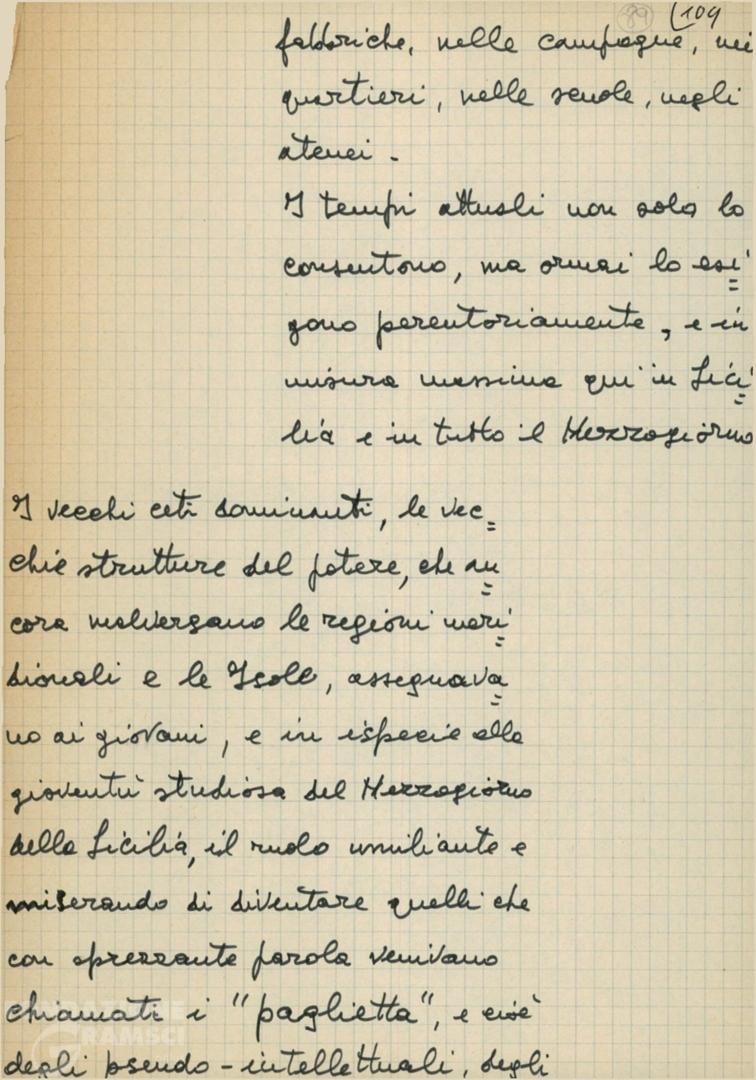 89 (109
fabbriche, nelle campagne, nei
quartieri, nelle scuole, negli
atenei.
I tempi attuali non solo lo
consentono, ma ormai lo esi=
gono perentoriamente, e in
misura massima qui in Sici=
lia e in tutto il Mezzogiorno
I vecchi ceti dominanti, le vec=
chie strutture del potere, che an=
cora malversano le regioni meri=
dionali e le Isole, assegnava=
no ai giovani, e in ispecie alla
gioventù studiosa del Mezzogiorno
della Sicilia, il ruolo umiliante e
miserando di diventare quelli che
con sprezzante parola venivano
chiamati i "paglietta", e cioè
degli pseudo-intellettuali, degli
FONDAZIONE
GRAMSCI